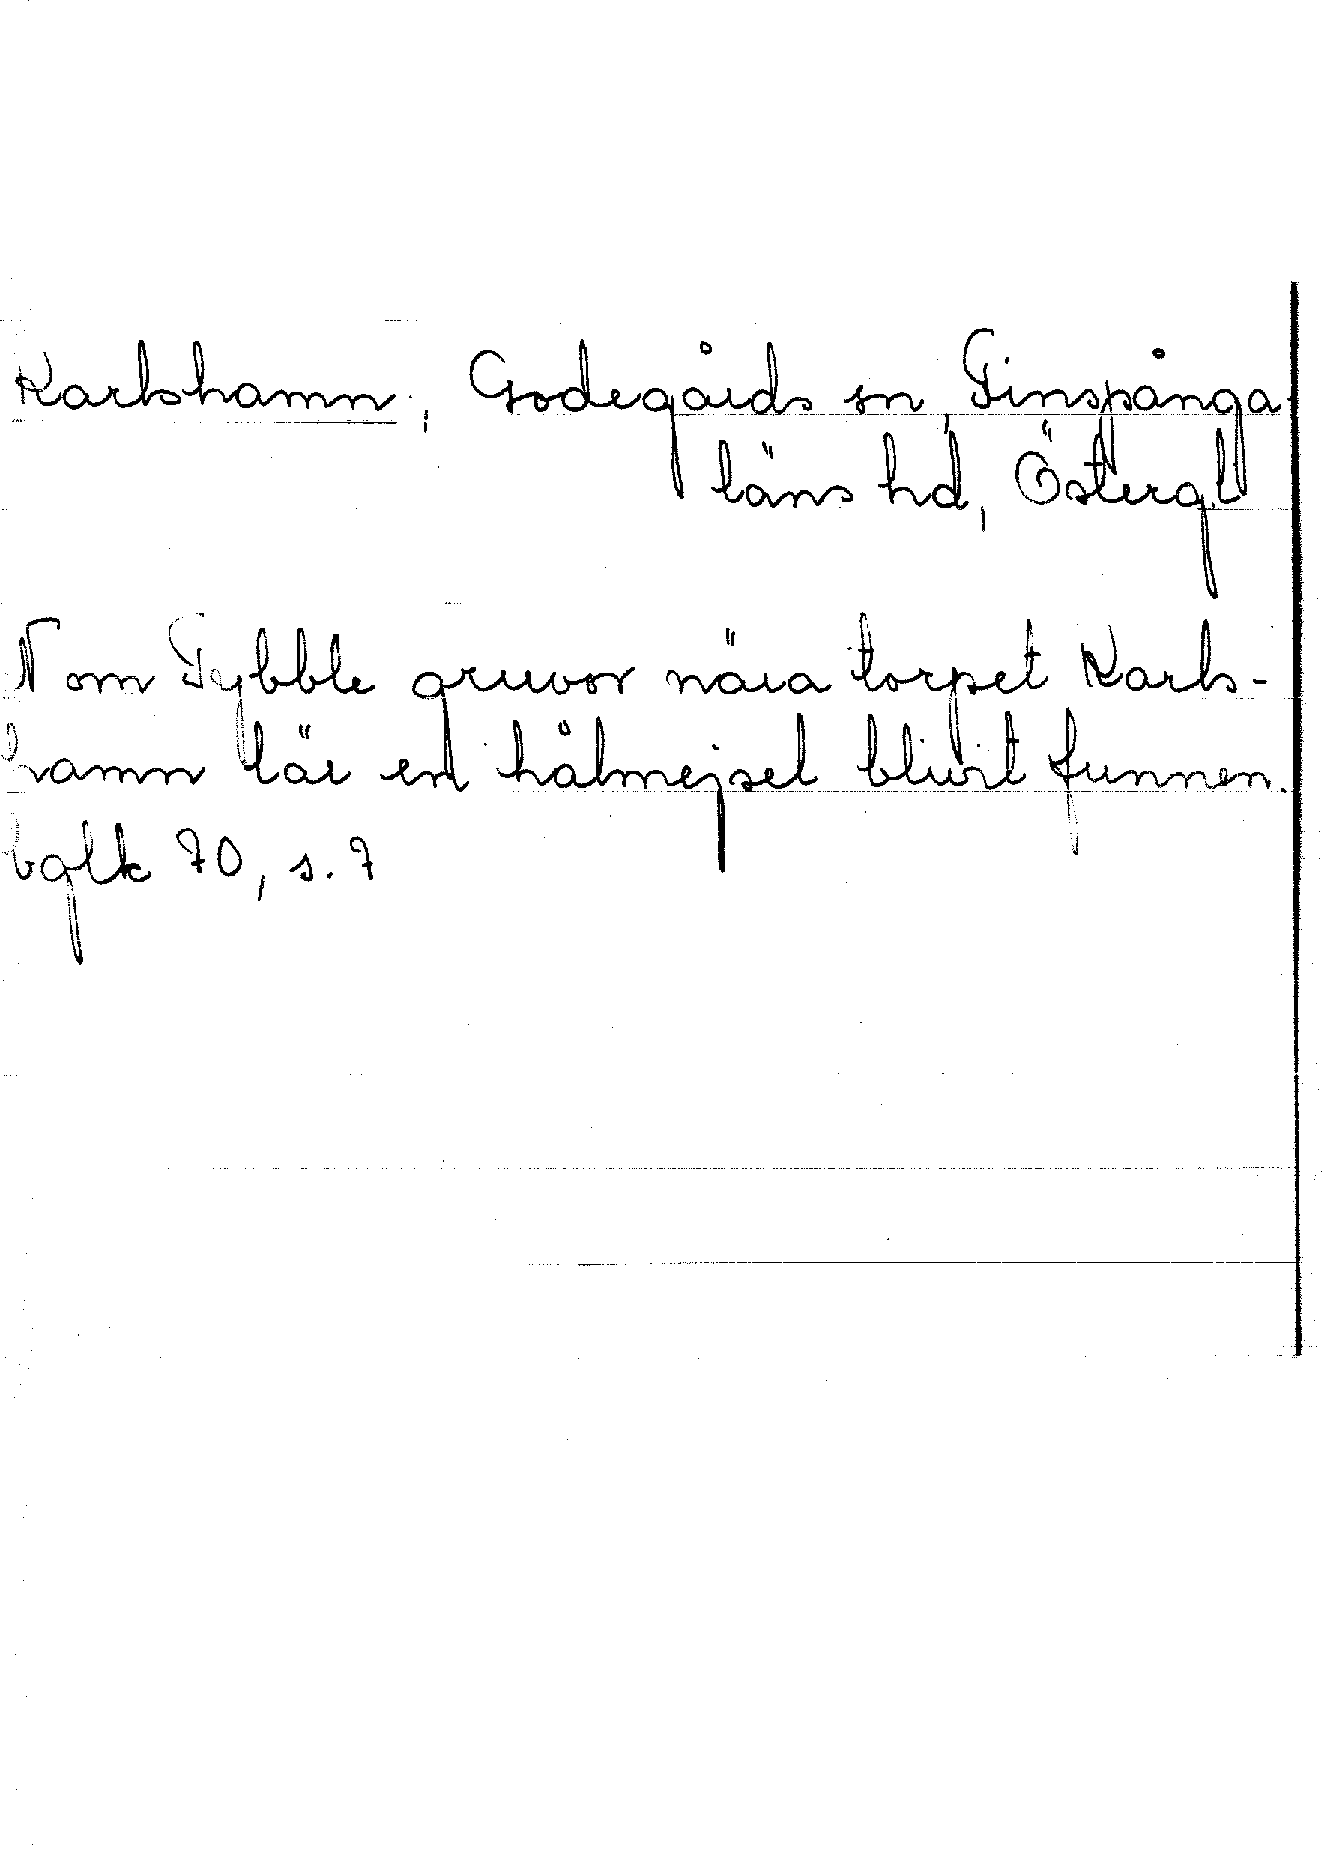 Karlshamn, Godegårds sn, Finspånga
läns hd, Östergl
N om Tybble gruvor nära torpet Karls-
hamn lär en hålmejsel blivit funnen.
bglk 70, s. 7